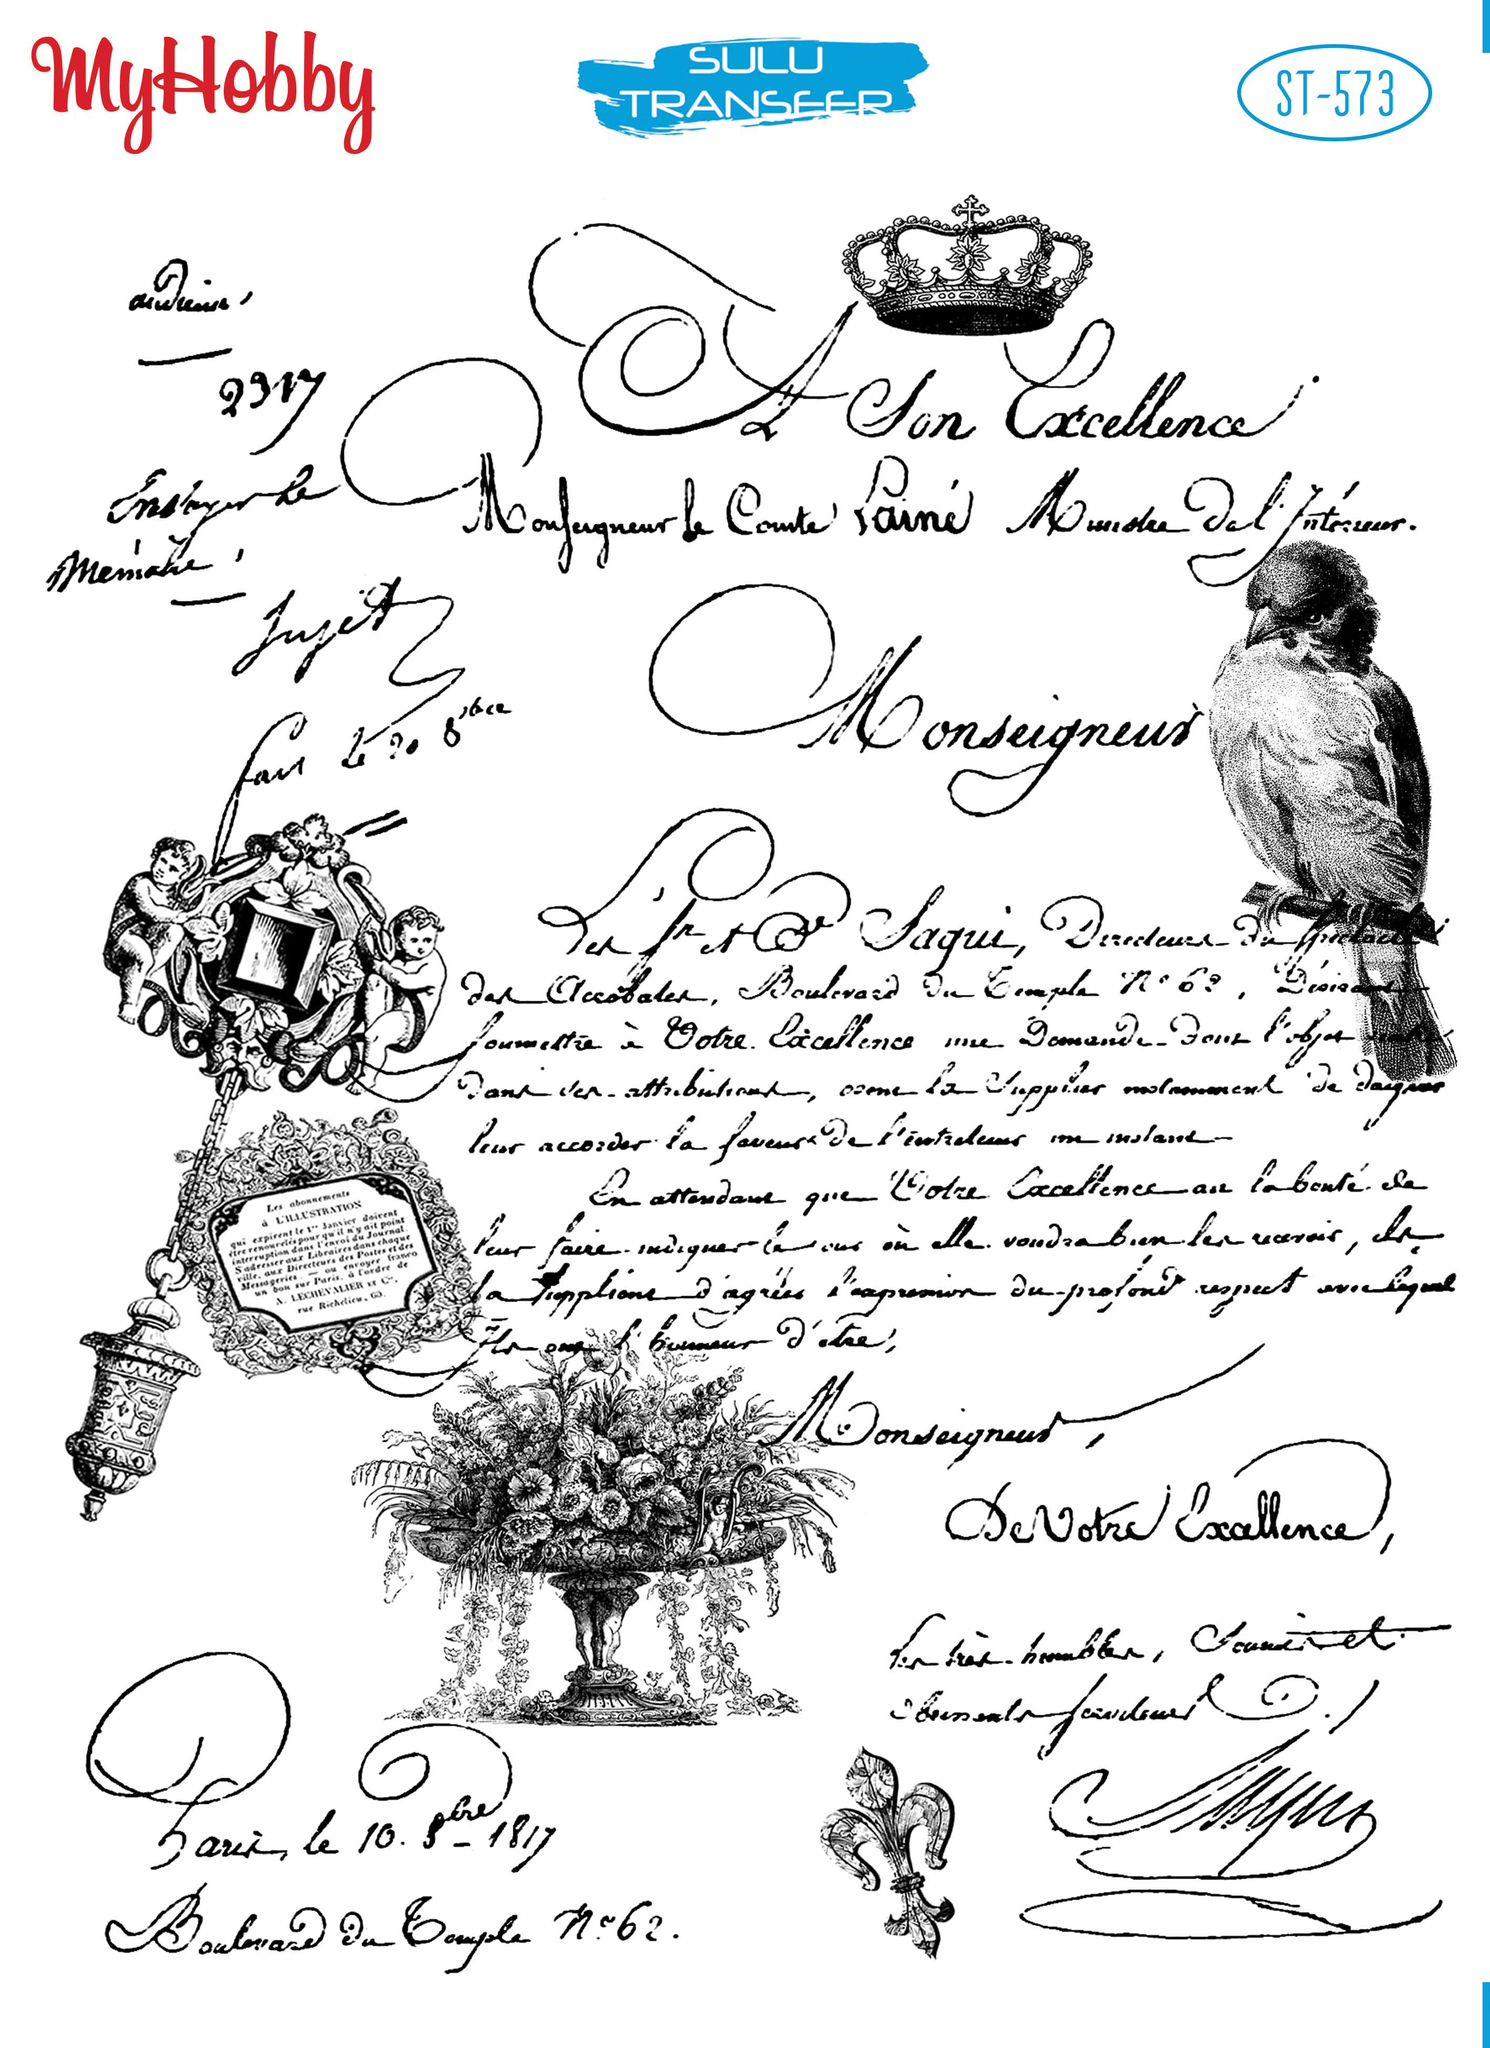 MyHobby
SULU
TRANSFER
ST-573
audience
2317
Envoyer le
Mémoire
fait le 20 8bre
A Son Excellence
Monseigneur le Comte Lainé Ministre de l'Intérieur.
Monseigneur
Les Sr et De Saqui, Directeurs du Spectacle
des Accrobates, Boulevard du Temple No 62, Désirant
soumettre à Votre Excellence une Demande dont l'objet
dans ses attributions, osent la Supplier de daigner
leur accorder la faveur de l'entretenir un instant
En attendant que Votre Excellence ait la bonté de
leur faire indiquer le jour où elle voudra bien les recevoir, ils
la supplient d'agréer l'expression du profond respect avec lequel
Ils ont l'honneur d'être,
Monseigneur,
De Votre Excellence,
Les très humbles, Soumis et
obéissants serviteurs
Paris, le 10. 8bre 1817
Boulevard du Temple No 62.
Les abonnements
à L'ILLUSTRATION
qui expirent le 1er Janvier doivent
être renouvelés pour qu'il n'y ait point
interruption dans l'envoi du Journal.
S'adresser aux Libraires dans chaque
ville, aux Directeurs des Postes et des
Messageries, — ou envoyer franco
un bon sur Paris, à l'ordre de
A. LECHEVALIER et Cie,
rue Richelieu, 60.